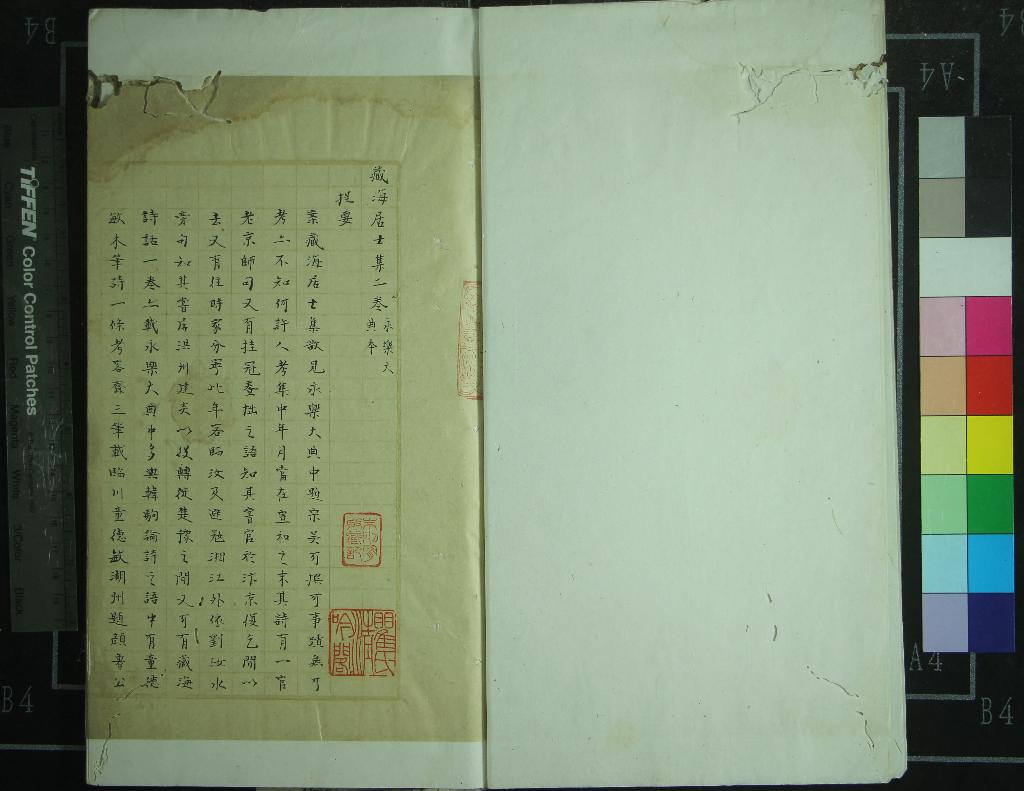 藏海居士集二卷 永樂大典本
提要
案藏海居士集散見永樂大典中題宋吳可撰可事蹟無可
考亦不知何許人考集中年月當在宣和之末其詩有一官
老京師句又有挂冠養拙之語知其嘗官於汴京復乞閒以
去又有往時家分寧比年客臨汝及避寇湘江外依劉汝水
旁句知其嘗居洪州建炎以後轉徙楚豫之間又可有藏海
詩話一卷亦載永樂大典中多與韓駒論詩之語中有童德
敏木筆詩一條考容齋三筆載臨川童德敏湖州題顏魯公
TIFFEN Color Control Patches
B4
A4
A4
B4
B4